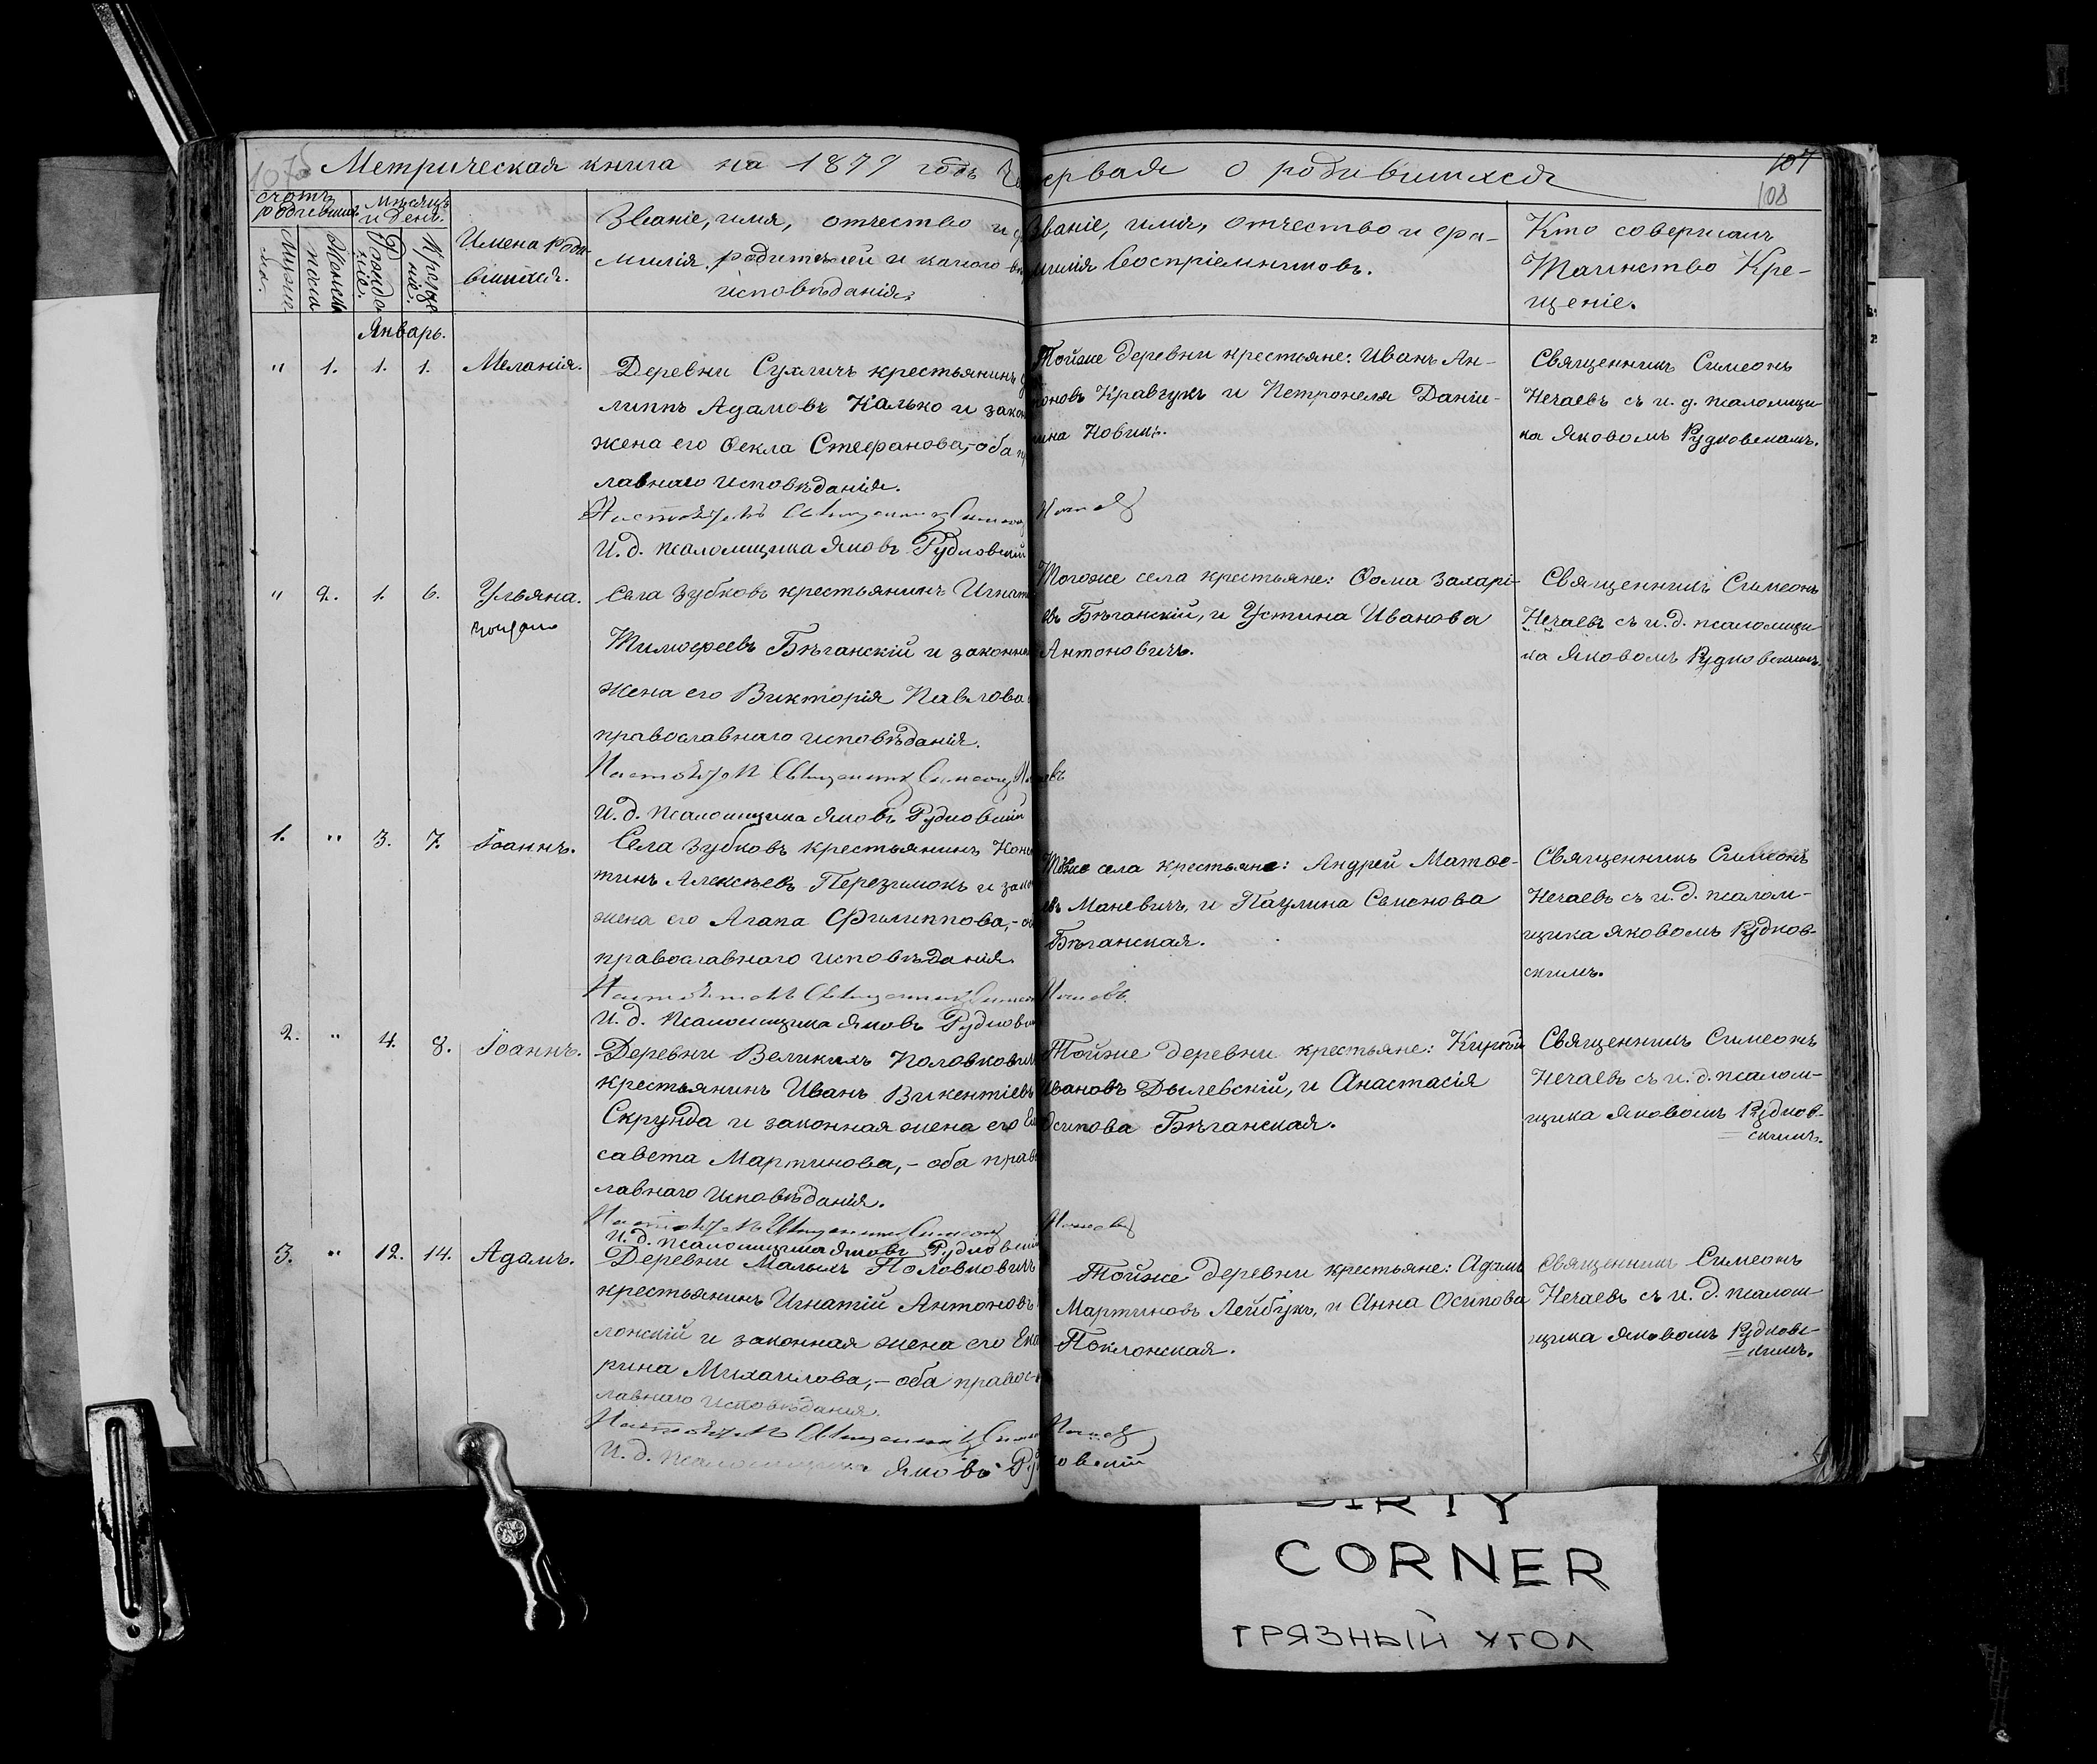 Метрическая книга на 1879 годъ Ч
ервая о родившихся
107
108
счетъ родившихся
Мѣсяцъ и День.
Женск пола
Рождение.
Имена роди-
вшихся.
Званіе, имя, отчество и ф
милія родителей и какого
исповѣданія.
Званіе, имя, отчество и фа-
милія воспріемниковъ.
Кто совершалъ
Таинство Кре-
щеніе.
Январь.
" 1. 1. 1. Меланія.
Деревни Сухличъ крестьянинъ
липпъ Адамовъ Калько и закон
жена его Ѳекла Стефанова,- оба п
лавнаго исповѣданія.
Настоятель Священникъ Симеонъ
И. д. псаломщика Яковъ Рудковскій
Тойже деревни крестьяне: Иванъ Ан-
оновъ Кравчукъ и Петронеля Даніи-
Новикъ.
Священникъ Симеонъ
Нечаевъ съ и. д. псаломщи-
ка Яковомъ Рудковскимъ.
" 2. 1. 6. Ульяна.
Села Зубковъ крестьянинъ Игнат
Тимоѳеевъ Бѣганскій и законна
жена его Викторія Павлова
православнаго исповѣданія.
Настоятель Священникъ Симеонъ
И. д. псаломщика Яковъ Рудковскій
Тогоже села крестьяне: Ѳома Захарі-
евъ Бѣганскій, и Устина Иванова
Антоновичъ.
Священникъ Симеонъ
Нечаевъ съ и. д. псаломщи
ка Яковомъ Рудковскимъ.
1. " 3. 7. Іоаннъ.
Села Зубковъ крестьянинъ Конс
тинъ Алексѣевъ Перезимокъ и зако
жена его Агапа Филиппова,- о
православнаго исповѣданія.
Настоятель Священникъ Симеон
И. д. псаломщика Яковъ Рудковск
села крестьяне: Андрей Матѳе-
евъ Маневичъ, и Паулина Семенова
Бѣганская.
Священникъ Симеонъ
Нечаевъ съ и. д. псалом-
щика Яковомъ Рудков-
скимъ.
2. " 4. 8. Іоаннъ.
Деревни Великихъ Половковичъ
крестьянинъ Иванъ Викентіевъ
Скрунда и законная жена его Ели
савета Мартинова,- оба прав
лавнаго исповѣданія.
Настоятель Священникъ Симеонъ
И. д. псаломщика Яковъ Рудковскій
Тойже деревни крестьяне:
Ивановъ Дылевскій, и Анастасія
Осипова Бѣганская.
Священникъ Симеонъ
Нечаевъ съ и. д. псалом-
щика Яковомъ Рудков-
скимъ.
3. " 12. 14. Адамъ.
Деревни Малыхъ Половковичъ
крестьянинъ Игнатій Антоновъ
лонскій и законная жена его Ека
рина Михаилова,- оба правос-
лавнаго исповѣданія.
Настоятель Священникъ Симеон
И. д. псаломщика Яковъ Рудковскій
Тойже деревни крестьяне: Адамъ
Мартиновъ Лейбукъ, и Анна Осипова
Поклонская.
Священникъ Симеонъ
Нечаевъ съ и. д. псалом-
щика Яковомъ Рудковс-
кимъ.
DIRTY
CORNER
ГРЯЗНЫЙ УГОЛ